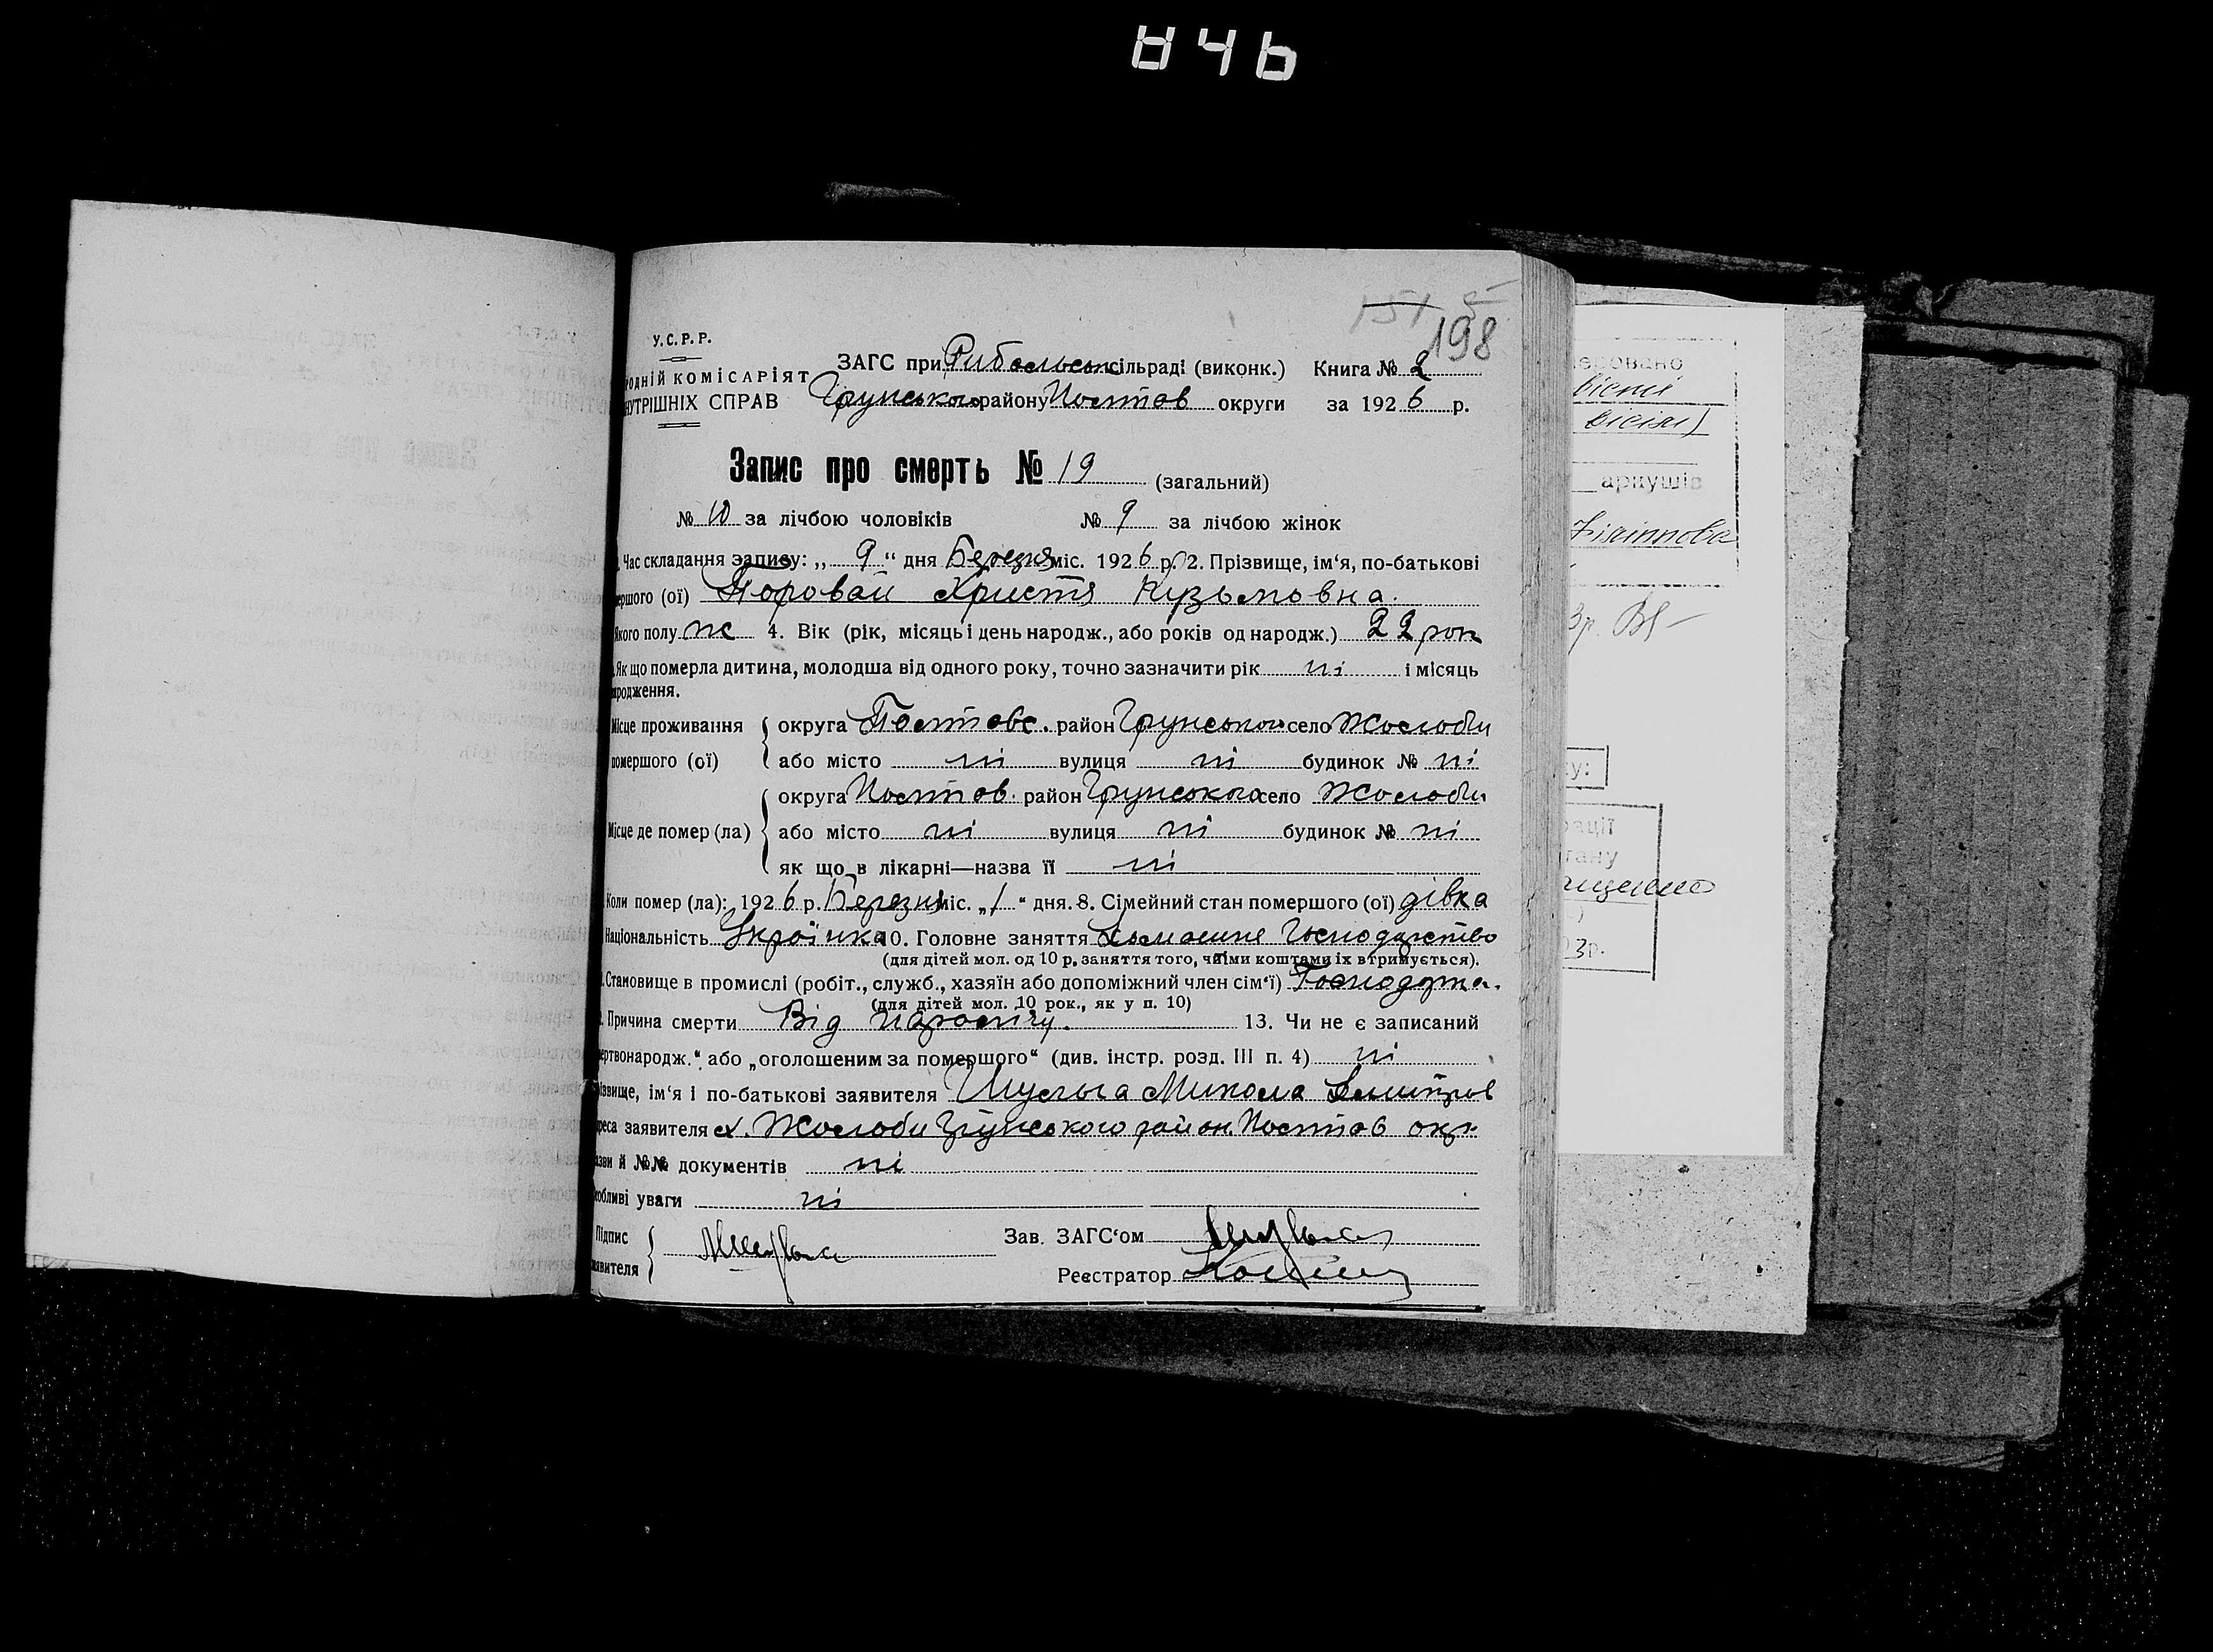 846
151
198
У.С.Р.Р.
ЗАГС при Рибальськ сільраді (виконк.) Книга № 2
родній комісаріят
Грунського району Полтав округи за 1926 р.
нутрішніх справ
Запис про смерть № 19 (загальний)
№ 10 за лічбою чоловіків № 9 за лічбою жінок
Час складання запису: „ 9 “ дня Березня міс. 1926 р. 2. Прізвище, ім‘я, по-батькові
мершого (ої) Поровай Христя Кузьмовна.
Якого полу ж 4. Вік (рік, місяць і день народж., або років од народж.) 22 рок
Як що померла дитина, молодша від одного року, точно зазначити рік ні і місяць
народження.
Місце проживання округа Полтавс. район Грунськой село Жолоби
помершого (ої) або місто ні вулиця ні будинок № ні
округа Полтав. район Грунського село Жолоби
Місце де помер (ла) або місто ні вулиця ні будинок № ні
як що в лікарні—назва її ні
Коли помер (ла): 1926 р. Березня міс. „1“ дня. 8. Сімейний стан помершого (ої) дівка
Національність Українка 10. Головне заняття Домашне Господарство
(для дітей мол. од 10 р. заняття того, чиїми коштами їх втримується).
Становище в промислі (робіт., служб., хазяїн або допоміжний член сім‘ї)
(для дітей мол. 10 рок., як у п. 10)
Причина смерти Від 13. Чи не є записаний
мертвонародж.“ або „оголошеним за помершого“ (див. інстр. розд. III п. 4) ні
ізвище, ім‘я і по-батькові заявителя Шульга Микола Дмитров
реса заявителя х. Жолоби Грунського район. Полтав окр
азви й №№ документів ні
собливі уваги ні
Підпис Зав. ЗАГС‘ом
заявителя Реєстратор
еровано
аркушів
Філіппова
3р.
у:
рації
тану
3р.